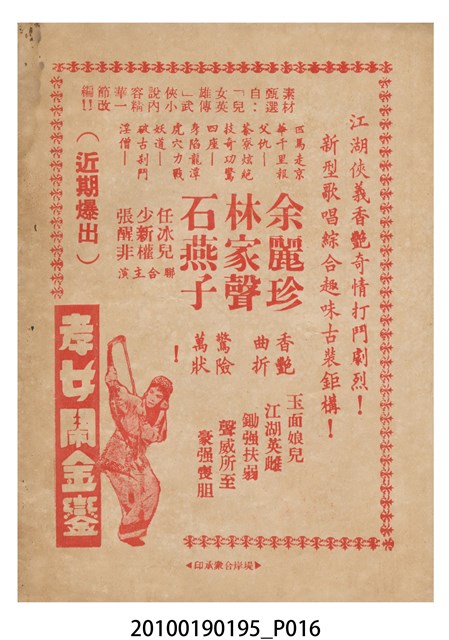 江湖俠義香艷奇情打鬥劇烈！
新型歌唱綜合趣味古裝鉅構！
素材
甄選
自：
「兒
女英
雄傳
」武
俠小
說內
容精
華一
節改
編！！
匹馬走京
華千里報
父仇—
茶寮炫絕
技奇功驚
四座—
身陷龍潭
虎穴力戰
妖道—
破古剎鬥
淫僧—
余麗珍
林家聲
石燕子
任冰兒
少新權
張醒非
聯合主演
（近期爆出）
香艷
曲折
驚險
萬狀
！
玉面娘兒
江湖英雌
鋤強扶弱
聲威所至
豪强喪胆
孝女鬧金鑾
堤岸合承印
20100190195_P016